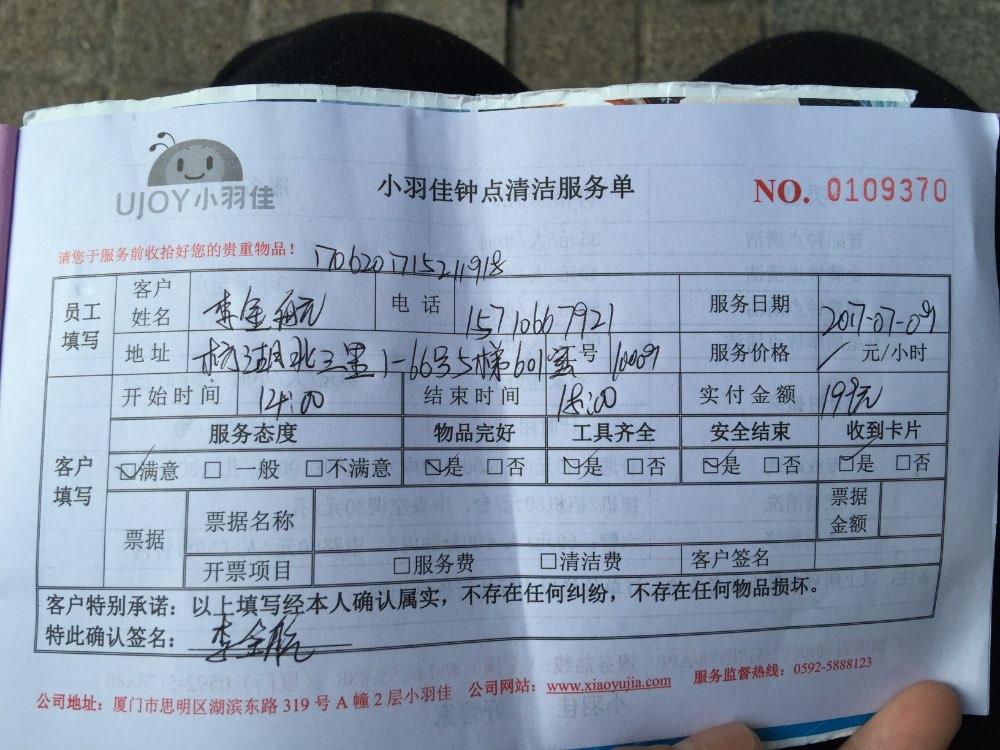 UJOY小羽佳
小羽佳钟点清洁服务单
NO. 0109370
请您于服务前收拾好您的贵重物品！
1706201715211918
员工填写 客户姓名 李金 电话 15710667921 服务日期 2017-07-09
地址 湖北三里1-66号5梯601室 号 10009 服务价格 元/小时
客户填写 开始时间 14:00 结束时间 18:00 实付金额 199元
服务态度 物品完好 工具齐全 安全结束 收到卡片
☑满意 □一般 □不满意 ☑是 □否 ☑是 □否 ☑是 □否 ☑是 □否
票据 票据名称 票据金额
开票项目 □服务费 □清洁费 客户签名
客户特别承诺：以上填写经本人确认属实，不存在任何纠纷，不存在任何物品损坏。
特此确认签名： 李金
公司地址：厦门市思明区湖滨东路 319 号 A 幢 2 层小羽佳 公司网站：www.xiaoyujia.com 服务监督热线：0592-5888123